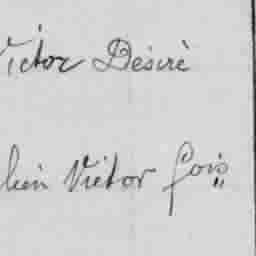 Victor Désiré
lien Victor fois